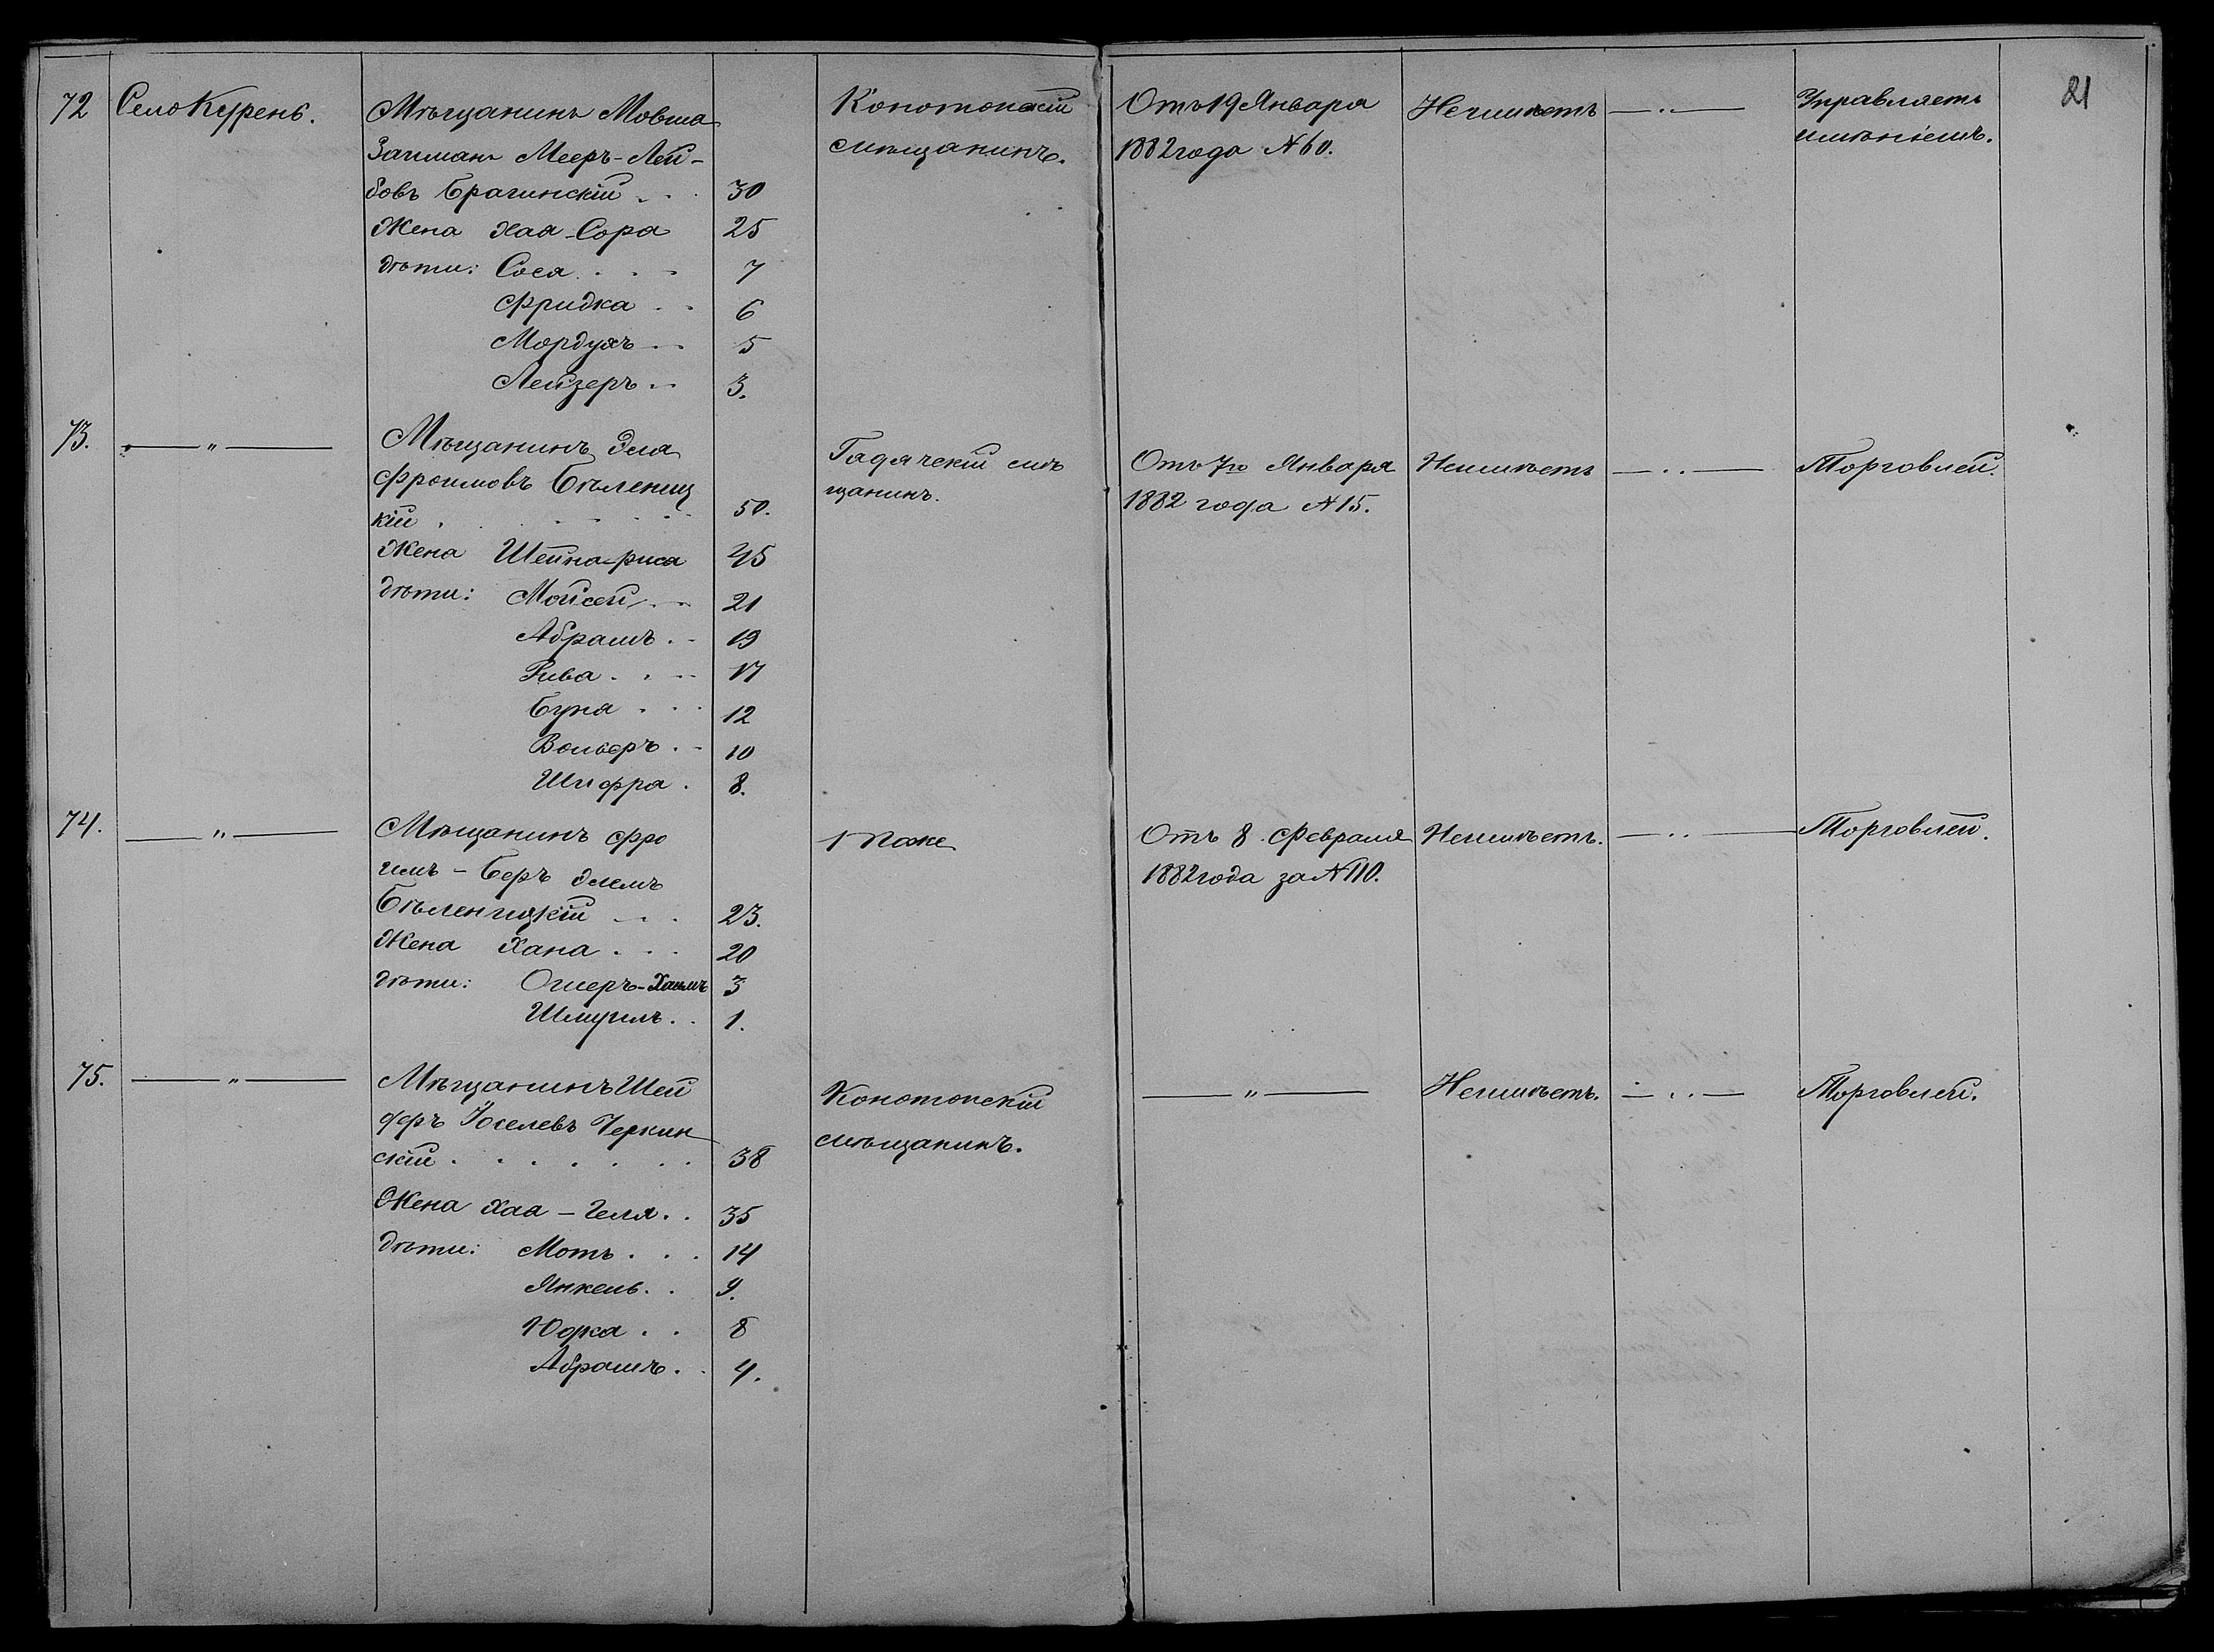 21
72 Село Курень.
Мѣщанинъ Мовша
Залманъ Мееръ-Лей-
бовъ Брагинскій . . 30
Жена Хая-Сора 25
дѣти: Сося . . . 7
Фридка . . 6
Мордухъ . . 5
Лейзеръ . . 3.
Конотопскій
мѣщанинъ.
Отъ 19 Января
1882 года № 60.
Неимѣетъ
— " —
Управляетъ
имѣніемъ.
73. — " —
Мѣщанинъ Эля
Фроимовъ Бѣлениц
кій . . . . . . 50.
Жена Шейна-риса 45
дѣти: Мойсей . . 21
Абрамъ . . 19
Рива . . . 17
Буня . . . 12
Вольфъ . . 10
Шифра . 8.
Гадячскій мѣ
щанинъ.
Отъ 7го Января
1882 года № 15.
Неимѣетъ
— " —
Торговлей.
74. — " —
Мѣщанинъ Фро
имъ - Беръ Элевъ
Бѣленицкій . . . 23.
Жена Хана . . . 20
дѣти: Ошеръ-Хаимъ 3
Шмуилъ . . 1.
Тоже
Отъ 8 Февраля
1882 года за № 110.
Неимѣетъ.
— " —
Торговлей.
75. — " —
Мѣщанинъ Шей
деръ Іоселевъ Черкин
скій . . . . . . . 38
Жена Хая - Геля . . 35
дѣти: Моть . . . 14
Янкель . . 9.
Юдка . . 8
Абрамъ . . 4.
Конотопскій
мѣщанинъ.
— " —
Неимѣетъ.
— " —
Торговлей.